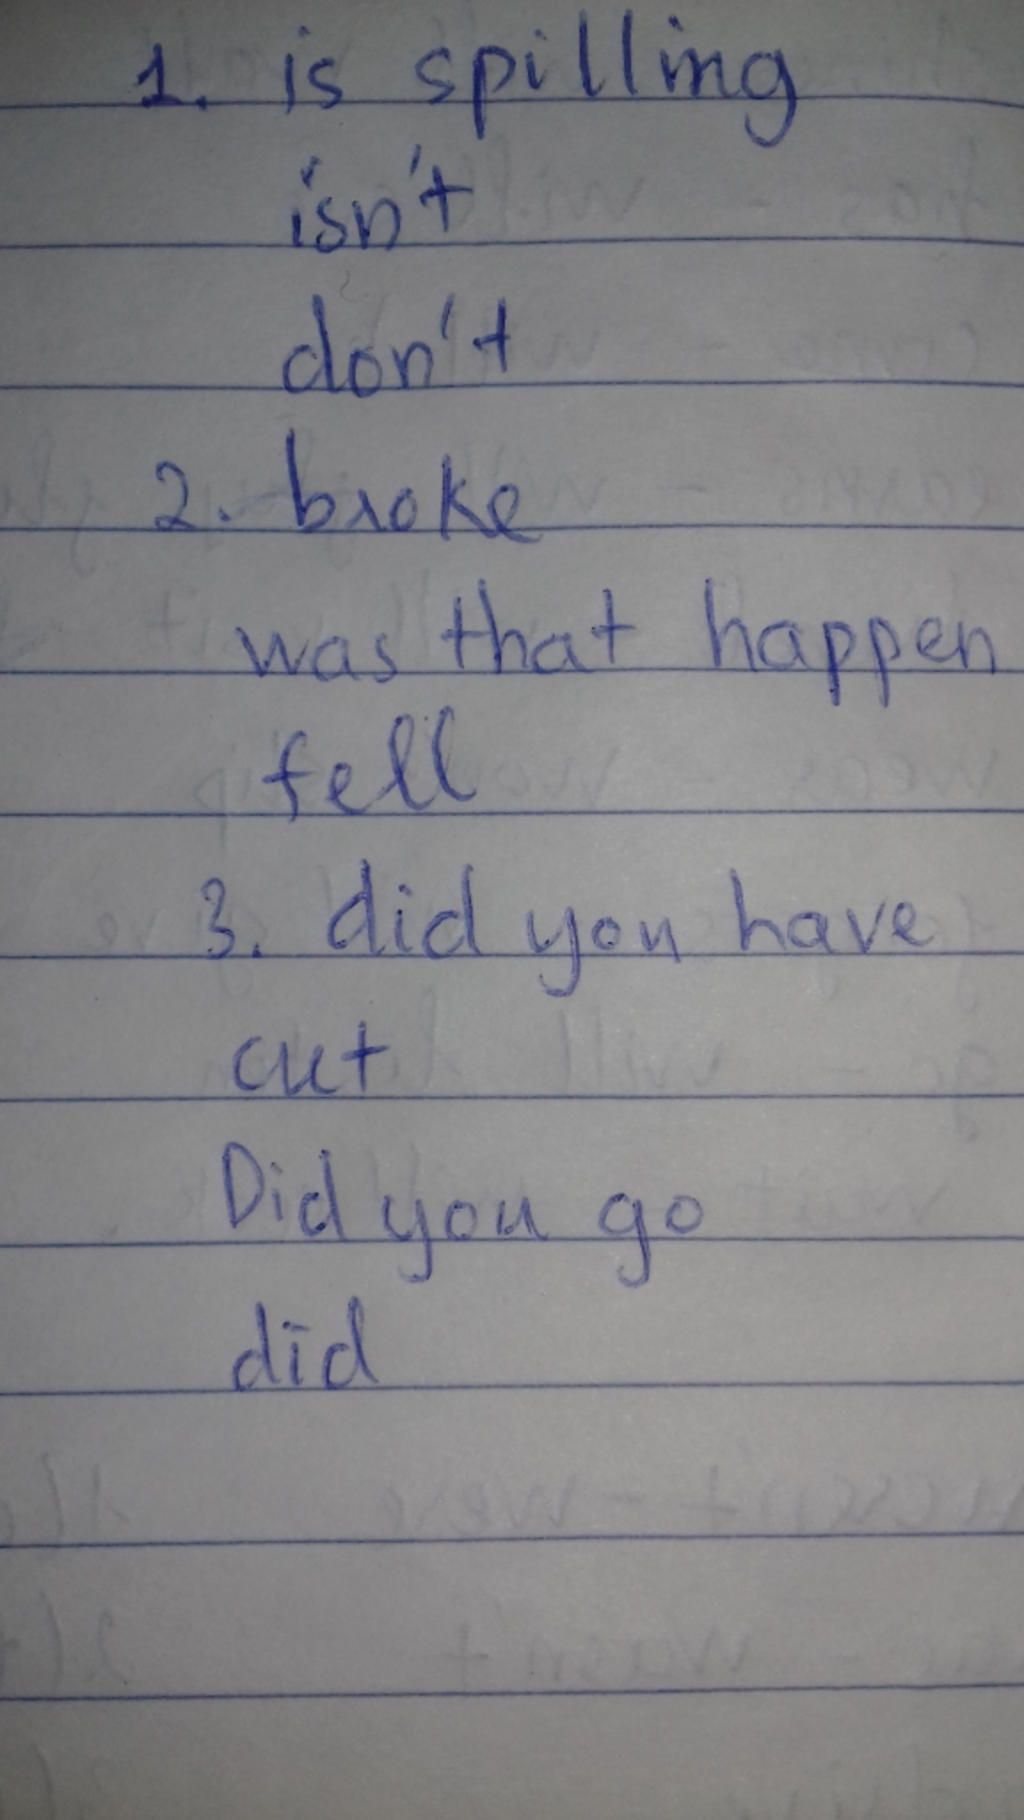 1. is spilling
isn't
don't
2. broke
was that happen
fell
3. did you have
cut
Did you go
did